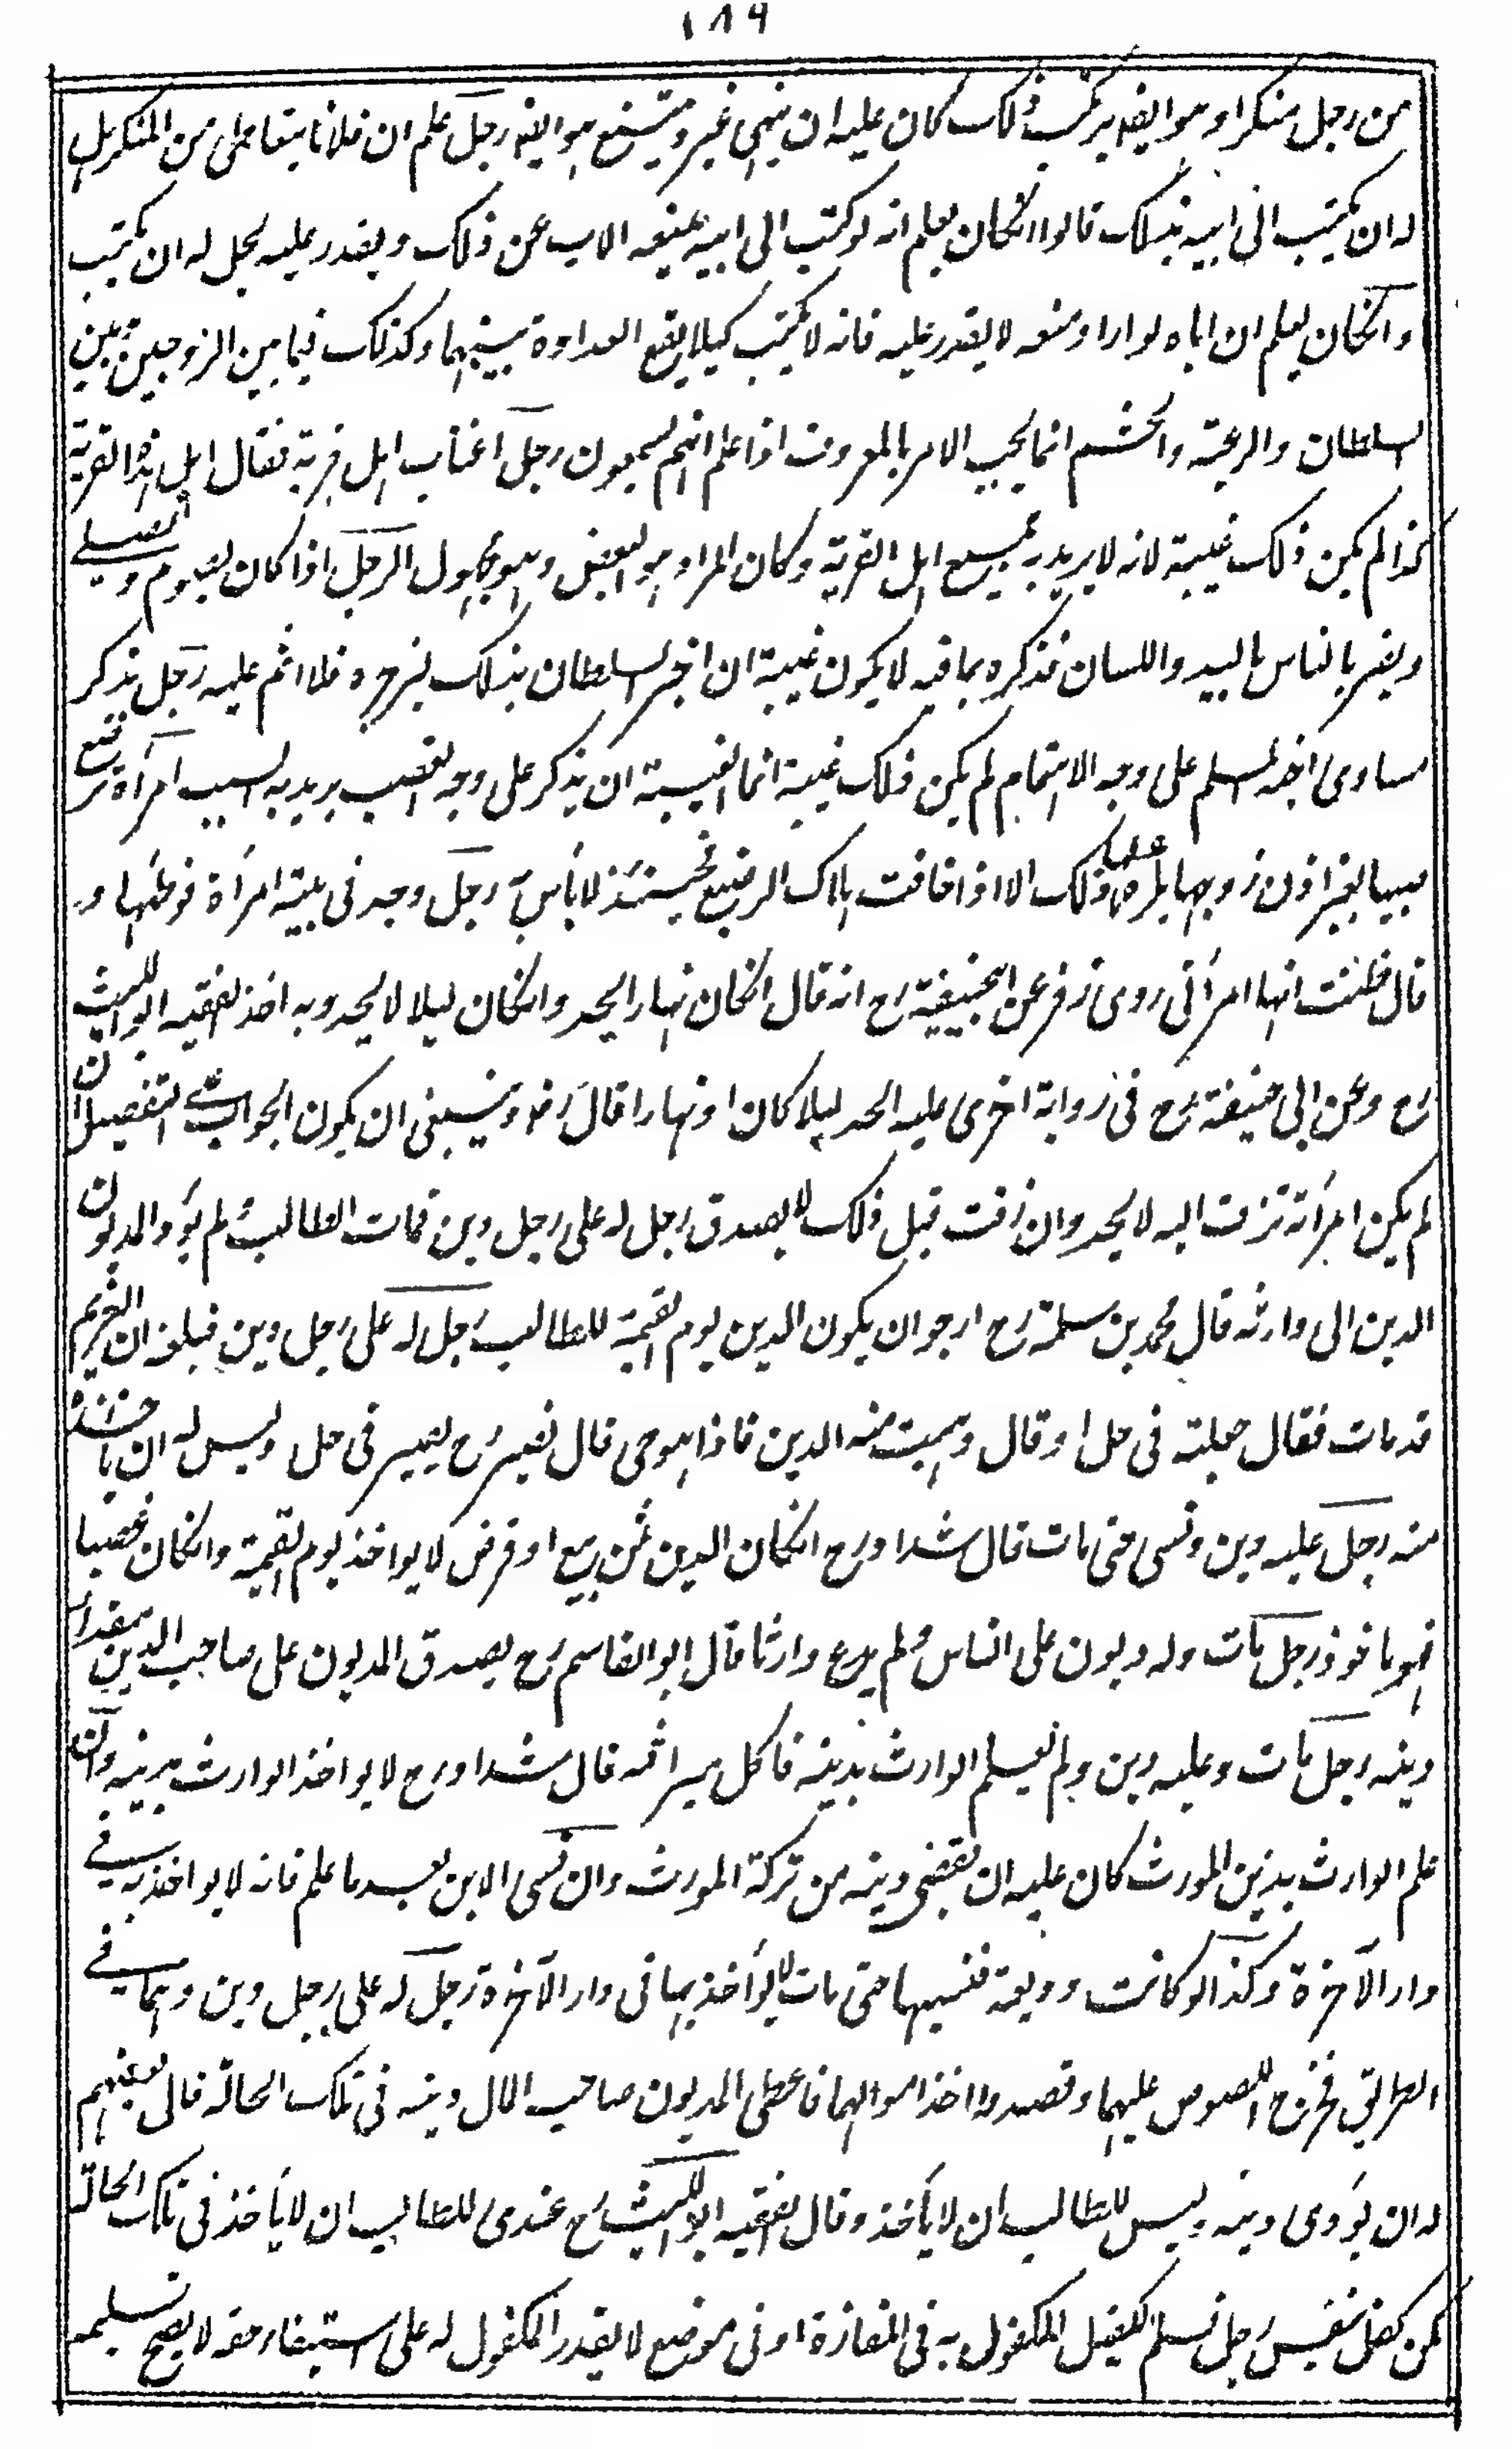 ۱۸۹
من رجل منكرا وهو ايضا يرتكب ذلك كان عليه ان ينهى غيره ويمتنع هو ايضا رجل علم ان فلانا يتعاطى من المنكر هل
له ان يكتب الى ابيه بذلك قالوا انكان يعلم انه لو كتب الى ابيه يمنعه الاب عن ذلك ويقدر عليه يحل له ان يكتب
وانكان يعلم ان اباه لو اراد منعه لا يقدر عليه فانه لا يكتب كيلا يقع العداوة بينهما وكذلك فيما بين الزوجين وبين
السلطان والرعية والحشم انما يجب الامر بالمعروف اذا علم انهم يسمعون رجل اغتاب اهل قرية فقال اهل هذه القرية
كذا لم يكن ذلك غيبة لانه لا يريد به جميع اهل القرية وكان المراد هو البعض وهو مجهول الرجل اذا كان يصوم ويصلي
ويضر بالناس باليد واللسان فذكره بما فيه لا يكون غيبة ان اخبر السلطان بذلك ليزجره فلا اثم عليه رجل يذكر
مساوى اخيه المسلم على وجه الاهتمام لم يكن ذلك غيبة انما الغيبة ان يذكر على وجه الغضب يريد به السب امرأة ترضع
صبيا بغير اذن زوجها يكره لها ذلك الا اذا خافت هلاك الرضيع فحينئذ لا بأس رجل وجد في بيته امرأة فوطئها و
قال ظننت انها امرأتى روى زفر عن ابيحنيفة رح انه قال انكان نهارا يحد وانكان ليلا لا يحد وبه اخذ الفقيه ابو الليث
رح وعن ابى حنيفة رح فى رواية اخرى عليه الحد ليلا كان او نهارا قال رض وينبغى ان يكون الجواب على التفصيل ان
لم يكن امرأته زفت اليه لا يحد وان زفت قبل ذلك لا يصدق رجل له على رجل دين فمات الطالب ولم يؤد المديون
الدين الى وارثه قال محمد بن سلمة رح ارجو ان يكون الدين يوم القيمة للطالب رجل له على رجل دين فبلغه ان الغريم
قد مات فقال جعلته فى حل او قال وهبت منه الدين فاذا هو حى قال نصير رح يصير فى حل وليس له ان ياخذه
منه رجل عليه دين ونسى حتى مات قال شداد رح انكان الدين ثمن بيع او قرض لا يواخذ يوم القيمة وانكان غصبا
فهو ماخوذ رجل مات وله ديون على الناس ولم يدع وارثا قال ابو القاسم رح يصدق المديون على صاحب الدين بمقدار
دينه رجل مات وعليه دين ولم يعلم الوارث بدينه فاكل ميراثه قال شداد رح لا يواخذ الوارث بدينه وان
علم الوارث بدين المورث كان عليه ان يقضى دينه من تركة المورث وان نسى الابن بعد ما علم فانه لا يواخذ به فى
دار الآخرة وكذا لو كانت وديعة فنسيها حتى مات لا يؤاخذ بها فى دار الآخرة رجل له على رجل دين وهما فى
الطريق فخرج اللصوص عليهما وقصدوا اخذ اموالهما فاعطى المديون صاحب المال دينه فى تلك الحالة قال بعضهم
له ان يؤدى دينه وليس للطالب ان لا يأخذ وقال الفقيه ابو الليث رح عندى للطالب ان لا يأخذ فى تلك الحالة
كمن كفل بنفس رجل فسلم الكفيل المكفول به فى المفازة او فى موضع لا يقدر المكفول له على استيفاء حقه لا يصح تسليمه